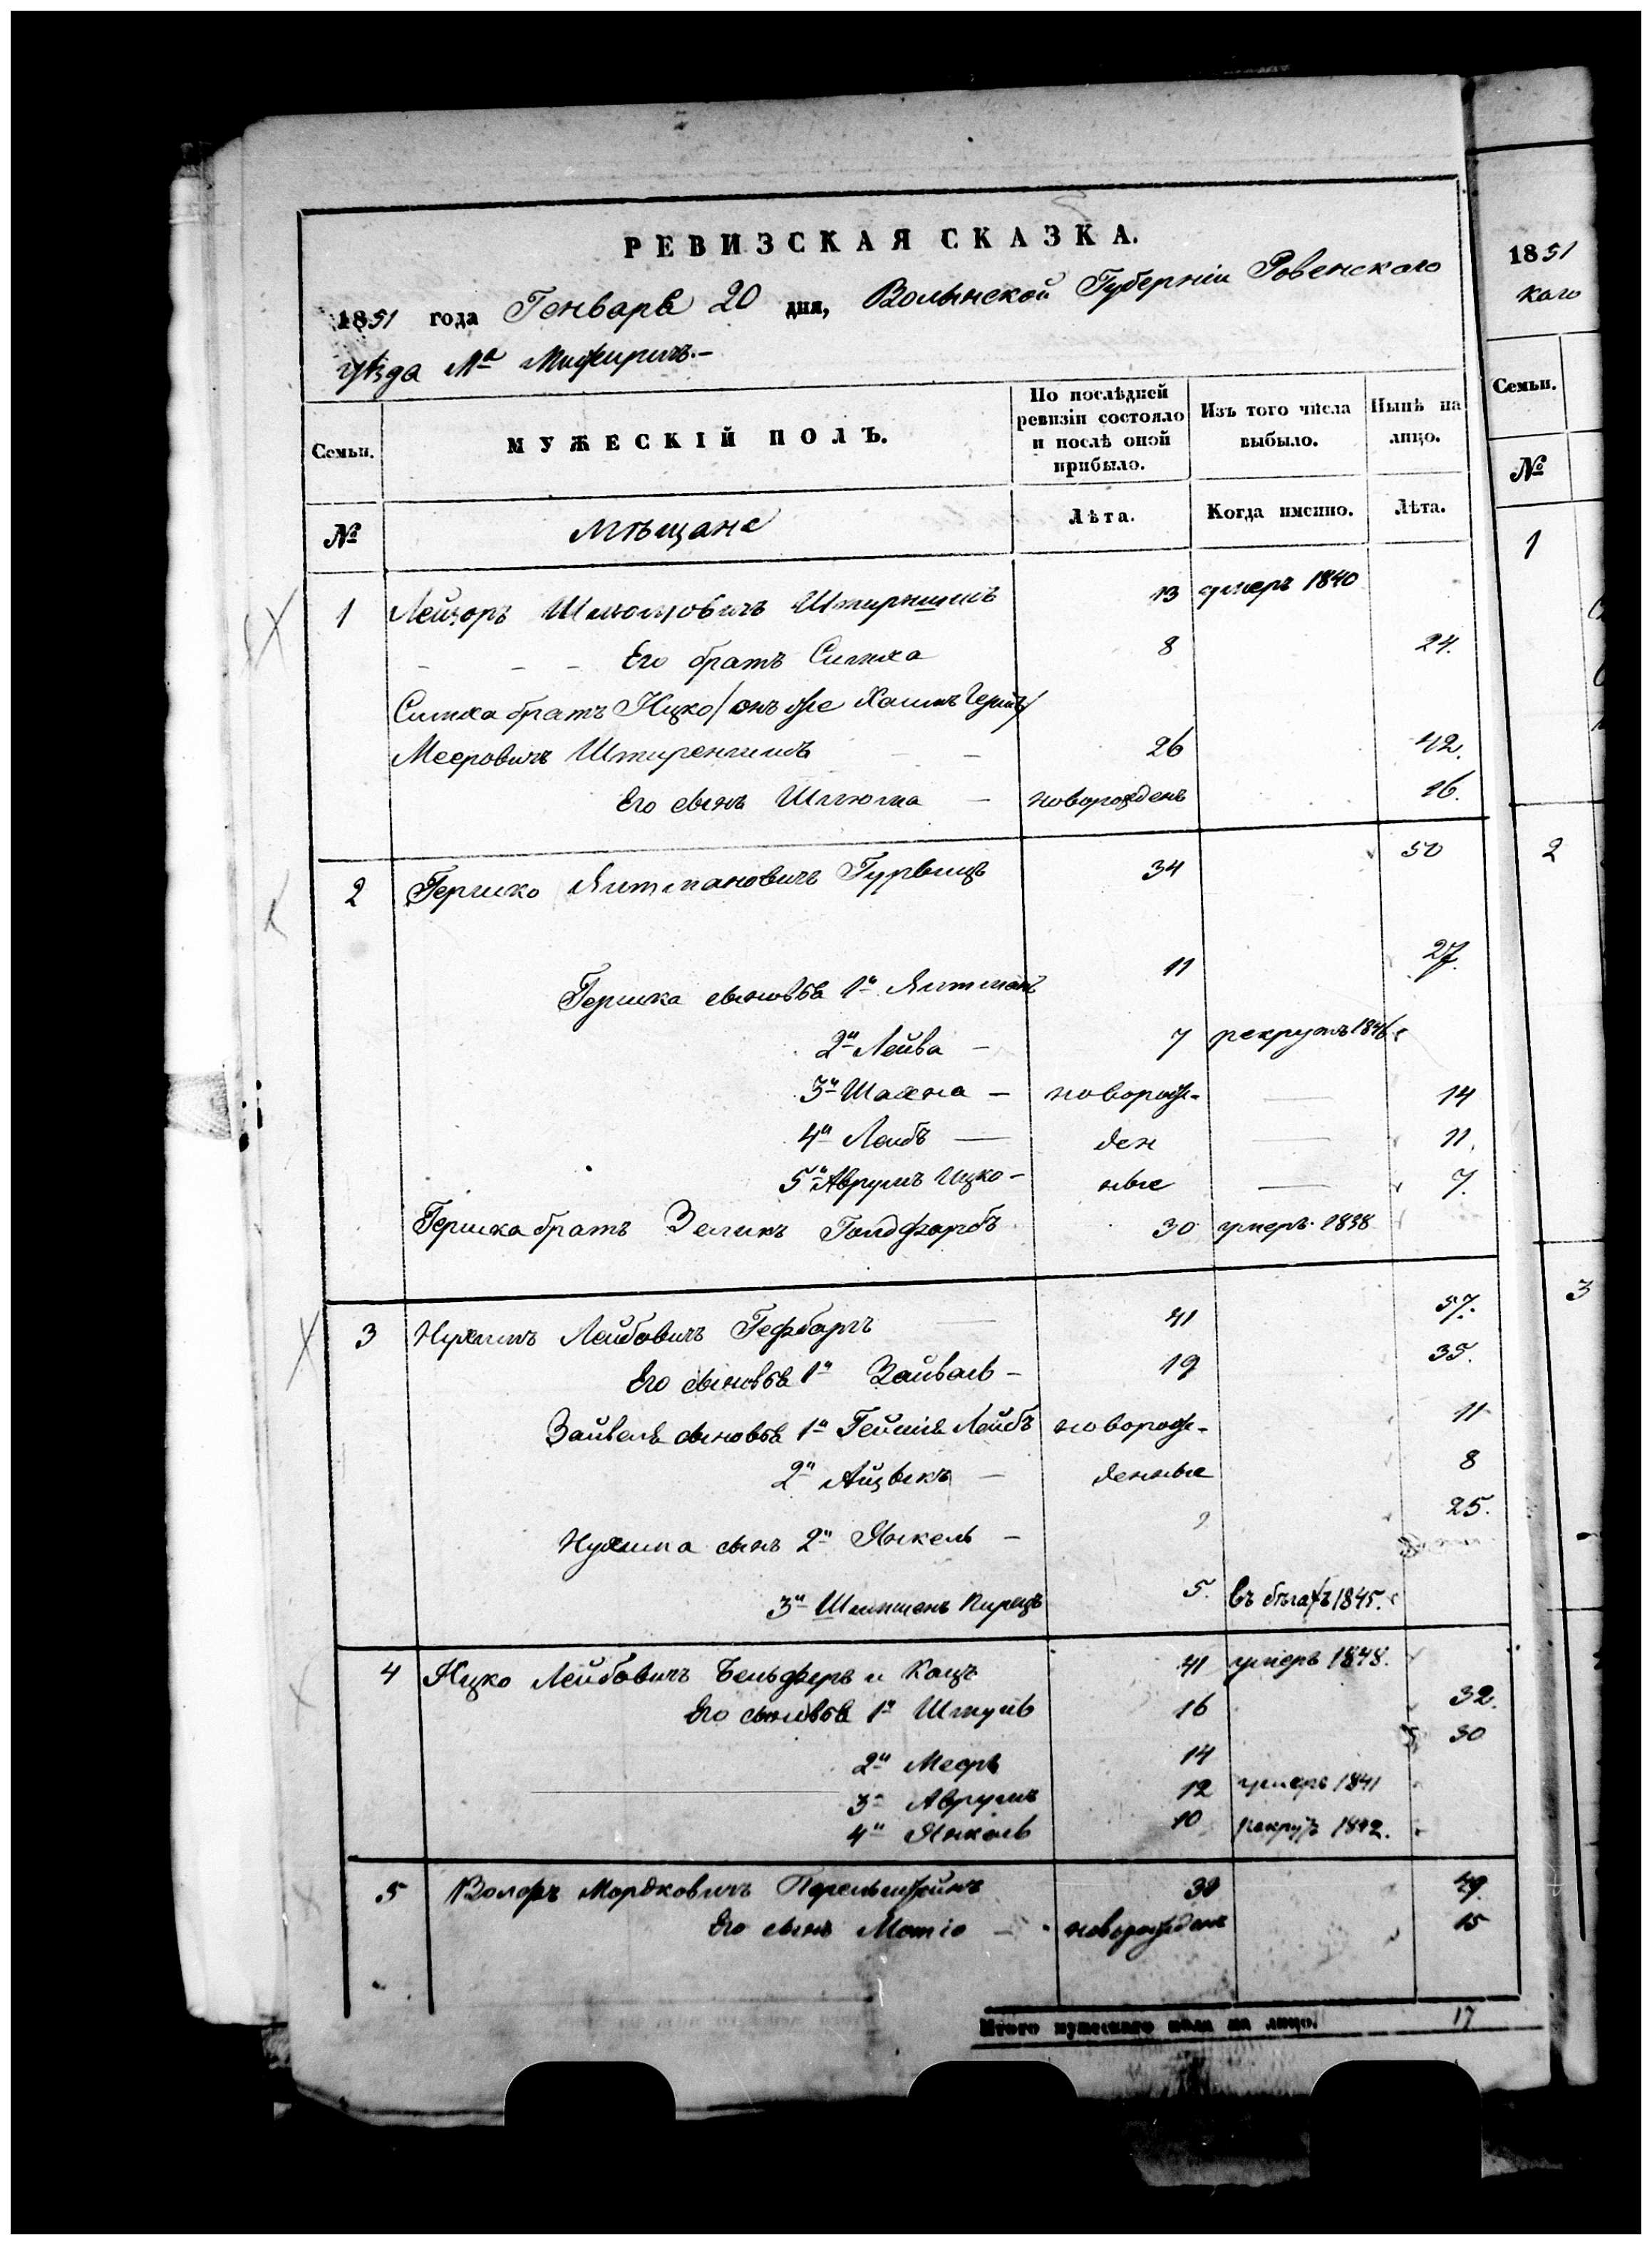 РЕВИЗСКАЯ СКАЗКА.
1851 года Генваря 20 дня, Волынской Губерніи Ровенскаго
уѣзда Мª Межиричъ.—
Семьи.
МУЖЕСКІЙ ПОЛЪ.
По послѣдней ревизіи состояло и послѣ оной прибыло.
Изъ того числа выбыло.
Нынѣ на лицо.
№
Мѣщане
Лѣта.
Когда именно.
Лѣта.
1 Лейзоръ Шлиомовичъ 13 умеръ 1840
Его братъ Симха 8 24.
Симха братъ Ицко /онъ же Хаимъ Гершъ/
Мееровичъ Штиренгимъ 26 42.
Его сынъ Шлиома — новорожденъ 16.
2 Гершко Литмановичъ Гурвицъ 34 50
Гершка сыновья 1й Литманъ 11 27.
2й Лейва — 7 рекрутъ 1846
3й Шахна — новорож- 14
4й Лейбъ — ден 11.
5й Аврумъ Ицко — ные 7.
Гершка братъ Зеликъ Голдфарбъ 30 умеръ 1838
3 Нухимъ Лейбовичъ 41 57.
Его сыновья 1й Зайвель — 19 35.
Зайвеля сыновья 1й Лейбъ новорож- 11
2й Айзыкъ — денные 8
Нухима сынъ 2й Янкель — 9 25.
3й Шимшонъ Перецъ 5. въ бѣгахъ 1845.
4 Ицко Лейбовичъ и Кацъ 41 умеръ 1848.
Его сыновья 1й Шмуль 16 32.
2й Мееръ 14 30
3й Аврумъ 12 умеръ 1841
4й Янкель 10 рекрутъ 1842.
5 Волфъ Мордковичъ Перельштейнъ 49.
Его сынъ Мотіо — новорожденъ 15
Итого мужескаго пола на лицо. 17
1851
каго
Семьи.
№
1
2
3